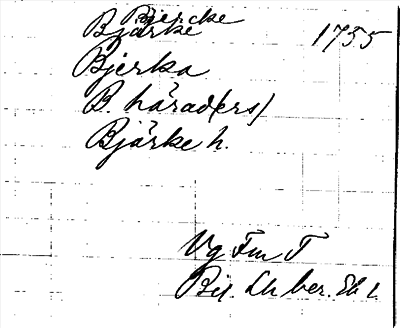 Biercke
Bjärke 1755
Bjerka
B. härad(ers)
Bjärke h.
Vg Fm T
Bil. Lh ber.